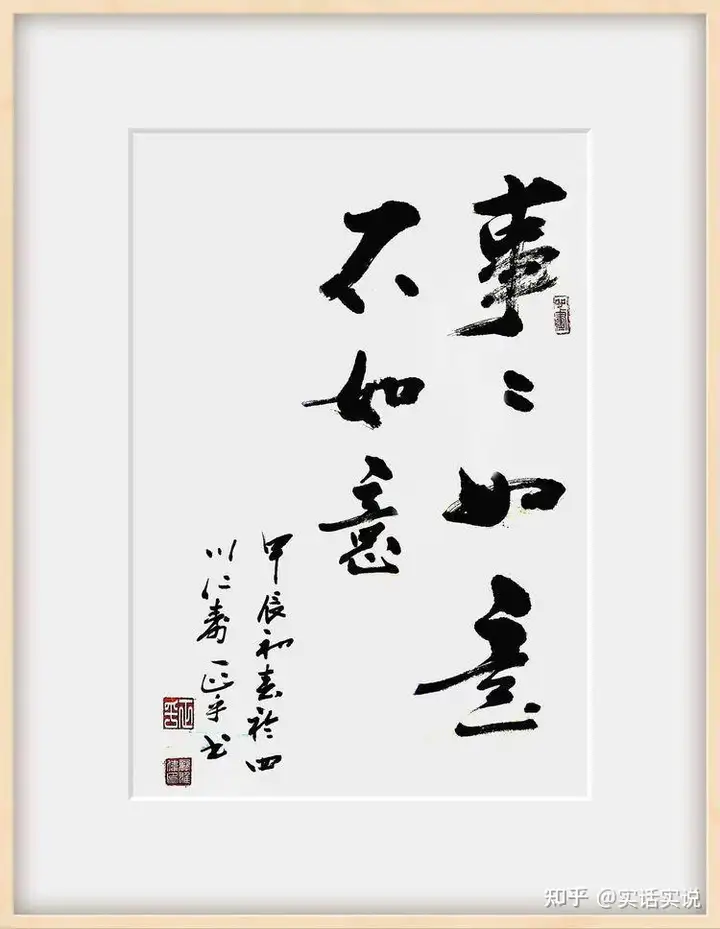 事〻如意
不如意
甲辰初春於四
川仁寿正平书
正平
知乎 @实话实说